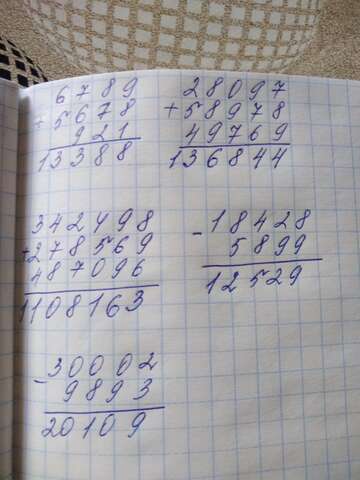 6789
+ 5678
921
13388
28097
+ 58978
49769
136844
342498
+ 278569
487096
1108163
- 18428
5899
12529
- 30002
9893
20109